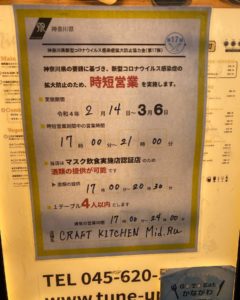 神奈川県
第17弾
神奈川県新型コロナウイルス感染症拡大防止協力金(第17弾)
神奈川県の要請に基づき、新型コロナウイルス感染症の
拡大防止のため、時短営業を実施します。
実施期間
令和4年 2月 14日～ 3月 6日
時短営業実施期間中の営業時間
17時00分～21時00分
当店はマスク飲食実施店認証店のため
酒類の提供が可能です
17時00分～20時30分
1テーブル4人以内とします
通常の営業時間 17時00分～24時00分
CRAFT KITCHEN Mid.Ru
TEL 045-620-5
www.tune-u
Go To Eat
かながわ